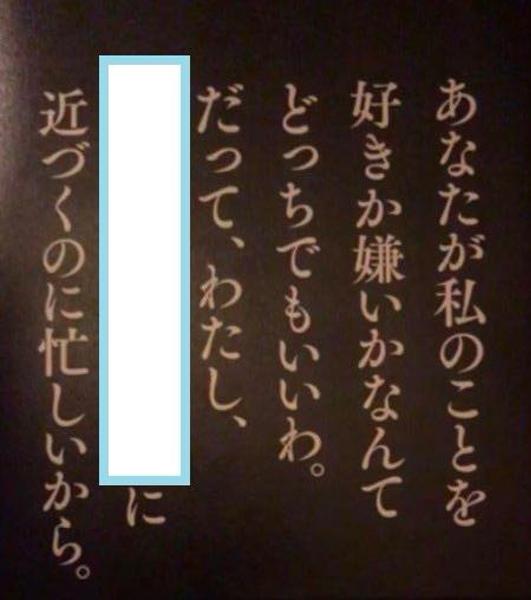 あなたが私のことを
好きか嫌いかなんて
どっちでもいいわ。
だって、わたし、
に
近づくのに忙しいから。